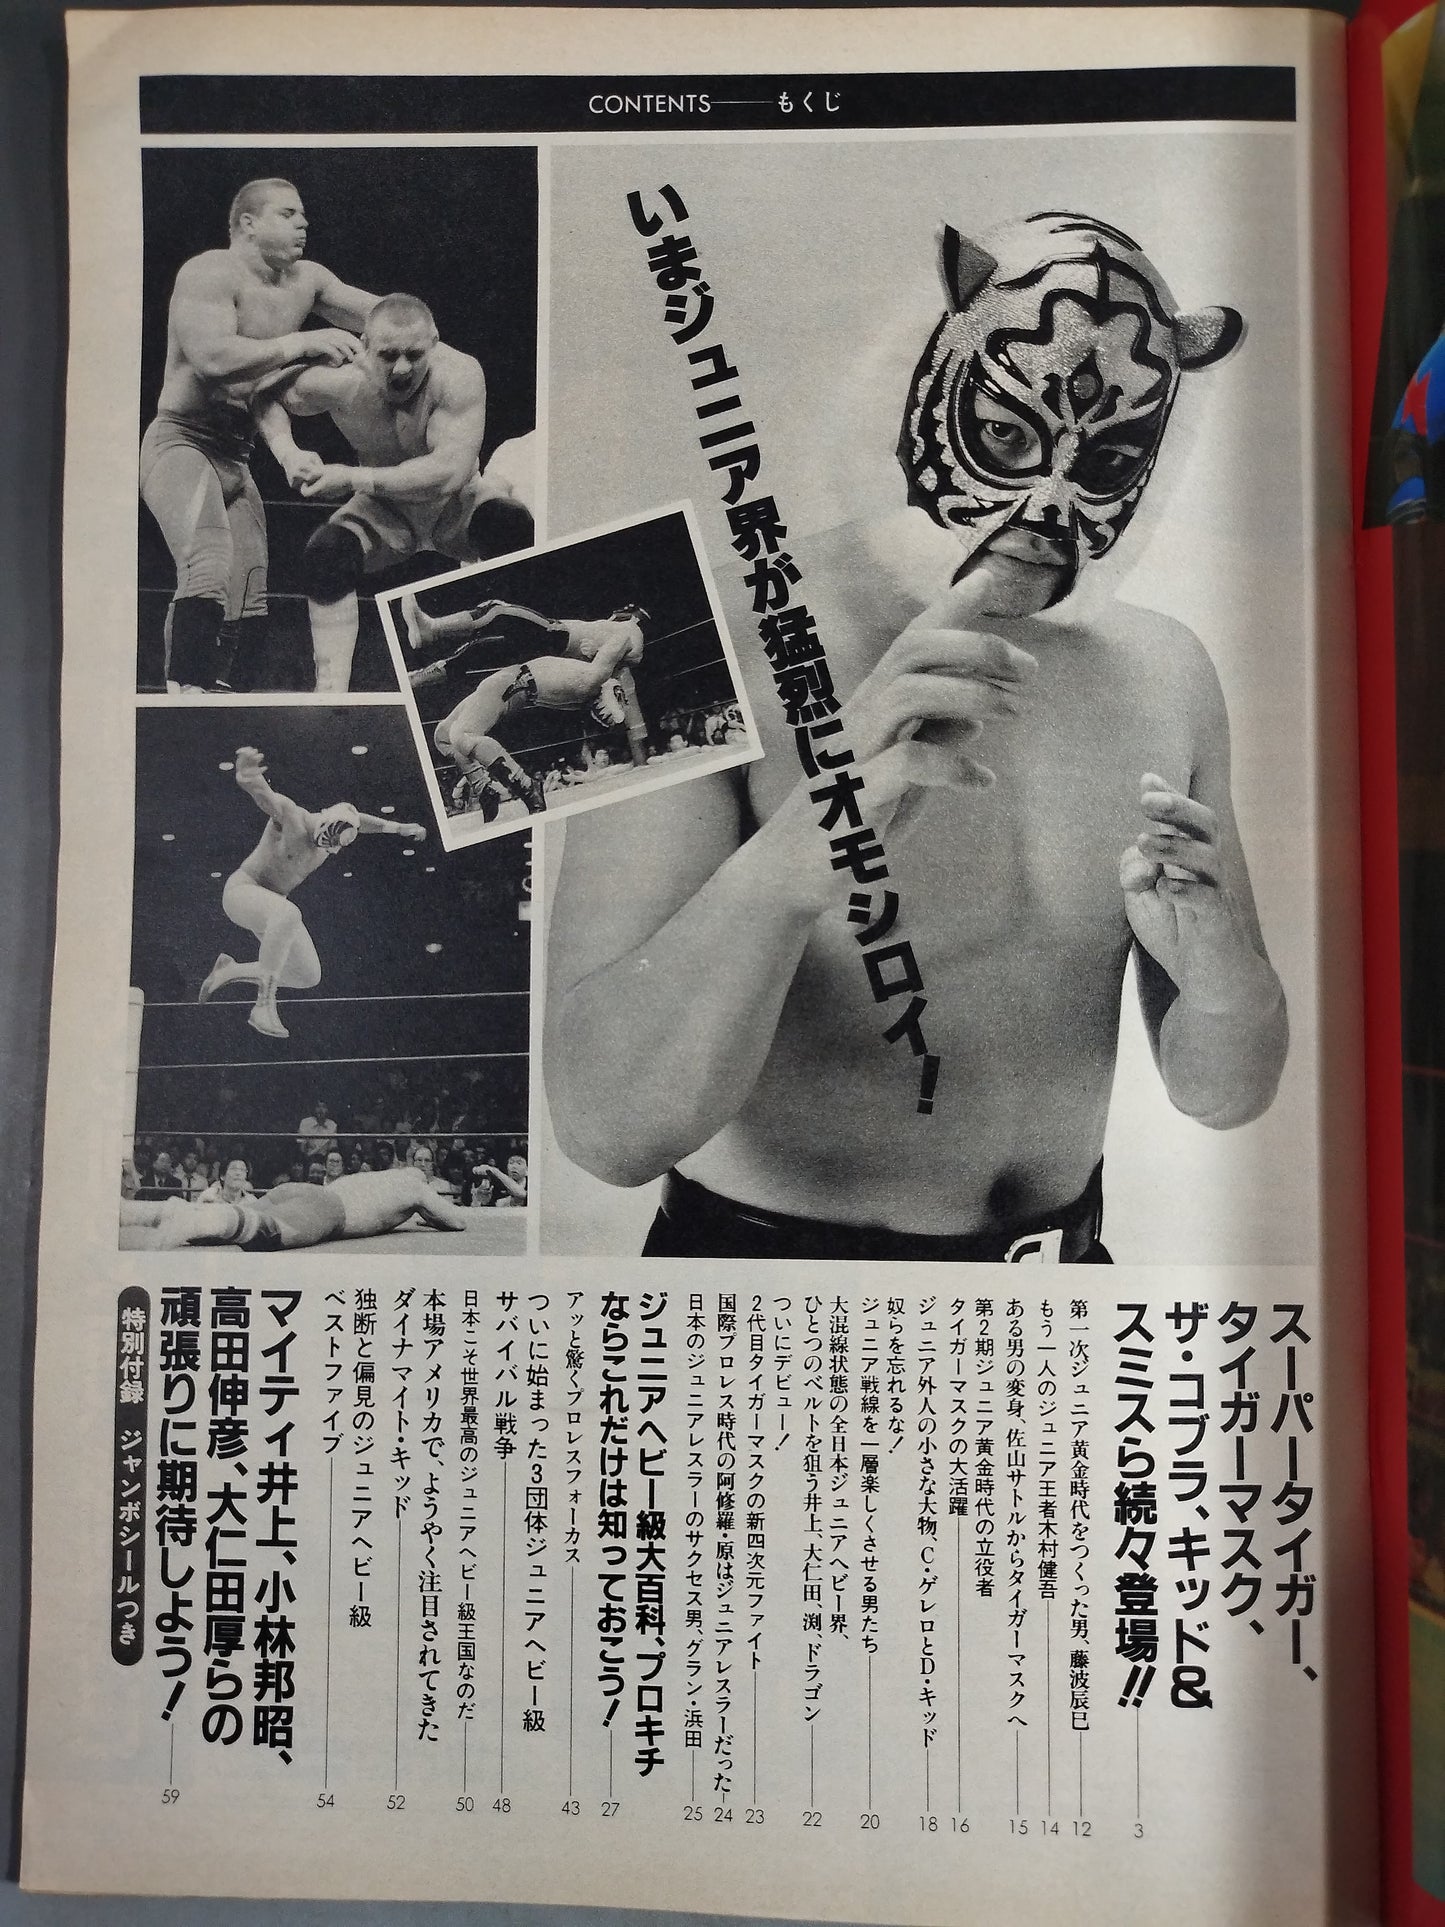 CONTENTS――もくじ
いまジュニア界が猛烈にオモシロイ!
スーパータイガー、
タイガーマスク、
ザ・コブラ、キッド&
スミスら続々登場!! 3
第一次ジュニア黄金時代をつくった男、藤波辰巳 12
もう一人のジュニア王者木村健吾 14
ある男の変身、佐山サトルからタイガーマスクへ 15
第2期ジュニア黄金時代の立役者
タイガーマスクの大活躍 16
ジュニア外人の小さな大物、C・ゲレロとD・キッド 18
奴らを忘れるな!
ジュニア戦線を一層楽しくさせる男たち 20
大混線状態の全日本ジュニアヘビー界、
ひとつのベルトを狙う井上、大仁田、渕、ドラゴン 22
ついにデビュー!
2代目タイガーマスクの新四次元ファイト 23
国際プロレス時代の阿修羅・原はジュニアレスラーだった 24
日本のジュニアレスラーのサクセス男、グラン・浜田 25
ジュニアヘビー級大百科、プロキチ
ならこれだけは知っておこう! 27
アッと驚くプロレスフォーカス 43
ついに始まった3団体ジュニアヘビー級
サバイバル戦争 48
日本こそ世界最高のジュニアヘビー級王国なのだ 50
本場アメリカで、ようやく注目されてきた
ダイナマイト・キッド 52
独断と偏見のジュニアヘビー級
ベストファイブ 54
マイティ井上、小林邦昭、
高田伸彦、大仁田厚らの
頑張りに期待しよう! 59
特別付録 ジャンボシールつき